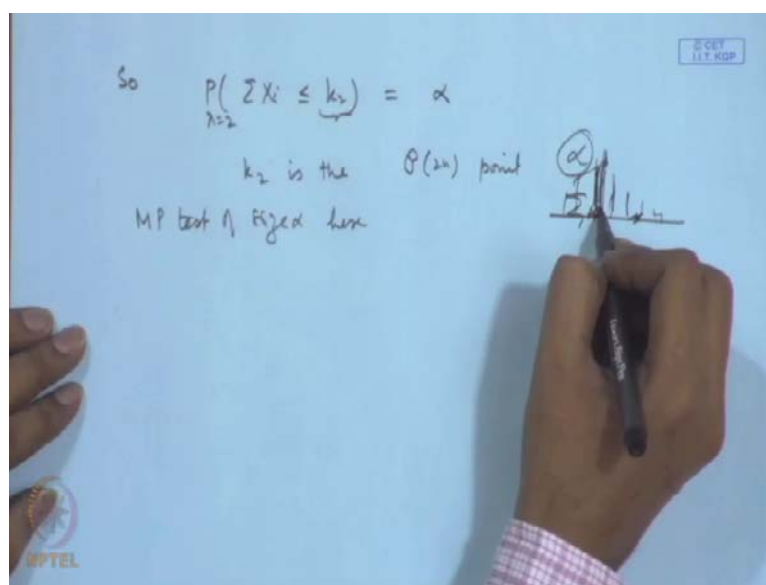 © CET
I.I.T. KGP
So P( ΣXi ≤ k₂) = α
λ=2
k₂ is the P(2n) point
α
MP test of size α here
NPTEL